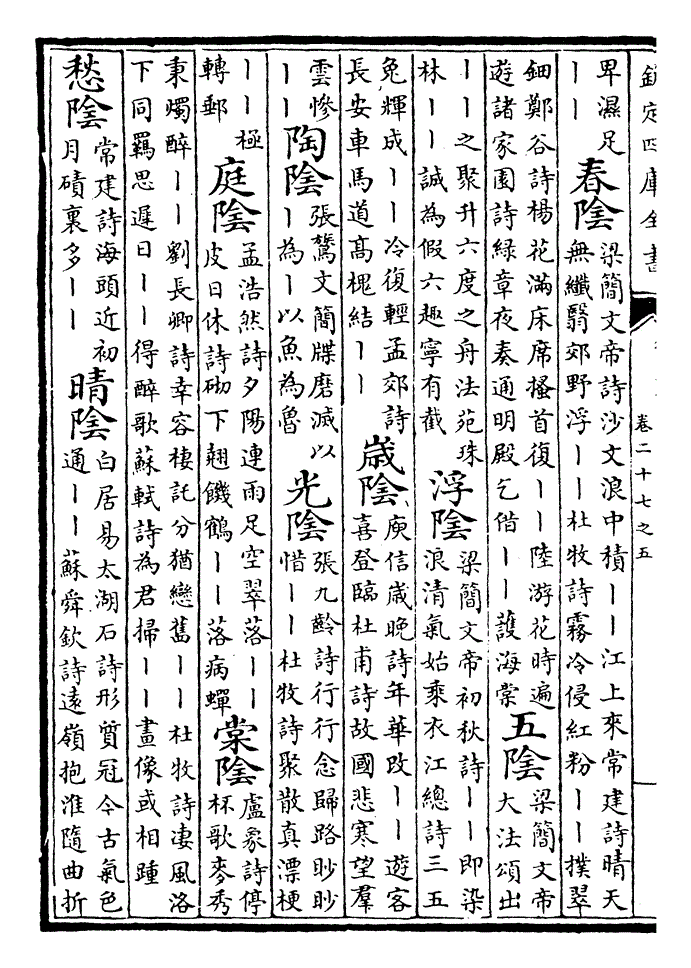 欽定四庫全書
卷二十七之五
卑濕足
丨丨
春陰
梁簡文帝詩沙文浪中積丨丨江上來常建詩晴天
無纖翳郊野浮丨丨杜牧詩霧冷侵紅粉丨丨撲翠
鈿鄭谷詩楊花滿床席搔首復丨丨陸游花時遍
遊諸家園詩綠章夜奏通明殿乞借丨丨護海棠
五陰
梁簡文帝
大法頌出
丨丨之聚升六度之舟法苑珠
林丨丨誠為假六趣寧有截
浮陰
梁簡文帝初秋詩丨丨即染
浪清氣始乘衣江總詩三五
兔輝成丨丨冷復輕孟郊詩
長安車馬道高槐結丨丨
歲陰
庾信歲晚詩年華改丨丨遊客
喜登臨杜甫詩故國悲寒望羣
雲慘
丨丨
陶陰
張鷟文簡牒磨滅以
丨為丨以魚為魯
光陰
張九齡詩行行念歸路眇眇
惜丨丨杜牧詩聚散真漂梗
丨丨極
轉郵
庭陰
孟浩然詩夕陽連雨足空翠落丨丨
皮日休詩砌下翹饑鶴丨丨落病蟬
棠陰
盧象詩停
杯歌麥秀
秉燭醉丨丨劉長卿詩幸容棲託分猶戀舊丨丨杜牧詩淒風洛
下同羈思遲日丨丨得醉歌蘇軾詩為君掃丨丨畫像或相踵
愁陰
常建詩海頭近初
月磧裏多丨丨
晴陰
白居易太湖石詩形質冠今古氣色
通丨丨蘇舜欽詩遠嶺抱淮隨曲折